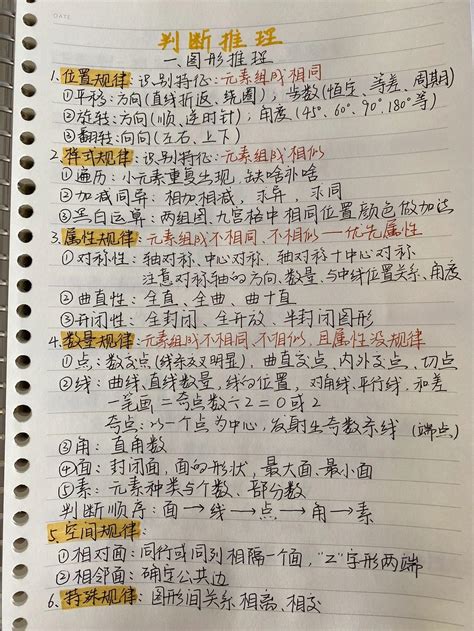 DATE
判断推理
一.图形推理
1.位置规律:识别特征:元素组成相同
①平移:方向(直线折返、绕圈);步数(恒定、等差、周期)
②旋转:方向(顺、逆时针);角度(45°、60°、90°,180°等)
③翻转:向向(左右、上下)
2.样式规律:识别特征:元素组成相似
①遍历:小元素重复出现,缺啥补啥
②加减同异:相加相减,求异,求同
③黑白运算:两组图、九宫格中相同位置颜色做加法
3.属性规律:元素组成不相同、不相似—优先属性
①对称性:轴对称、中心对称、轴对称+中心对称
注意对称轴的方向、数量、与中线位置关系、角度
②曲直性:全直、全曲、曲+直
③开闭性:全封闭、全开放、半封闭图形
4.数量规律:元素组成不相同、不相似、且属性没规律
①点:数交点(线条交叉明显),曲直交点、内外交点、切点
②线:曲线、直线数量,线的位置,对角线、平行线,和差
一笔画 二奇点数÷2=0或2
奇点:以一个点为中心,发射出奇数条线(端点)
③角:直角数
④面:封闭面,面的形状,最大面、最小面
⑤素:元素种类与个数、部分数
判断顺序:面→线→点→角→素
5.空间规律:
①相对面:同行或同列相隔一个面,"Z"字形两端
②相邻面:确定公共边
6.特殊规律:图形间关系 相离、相交